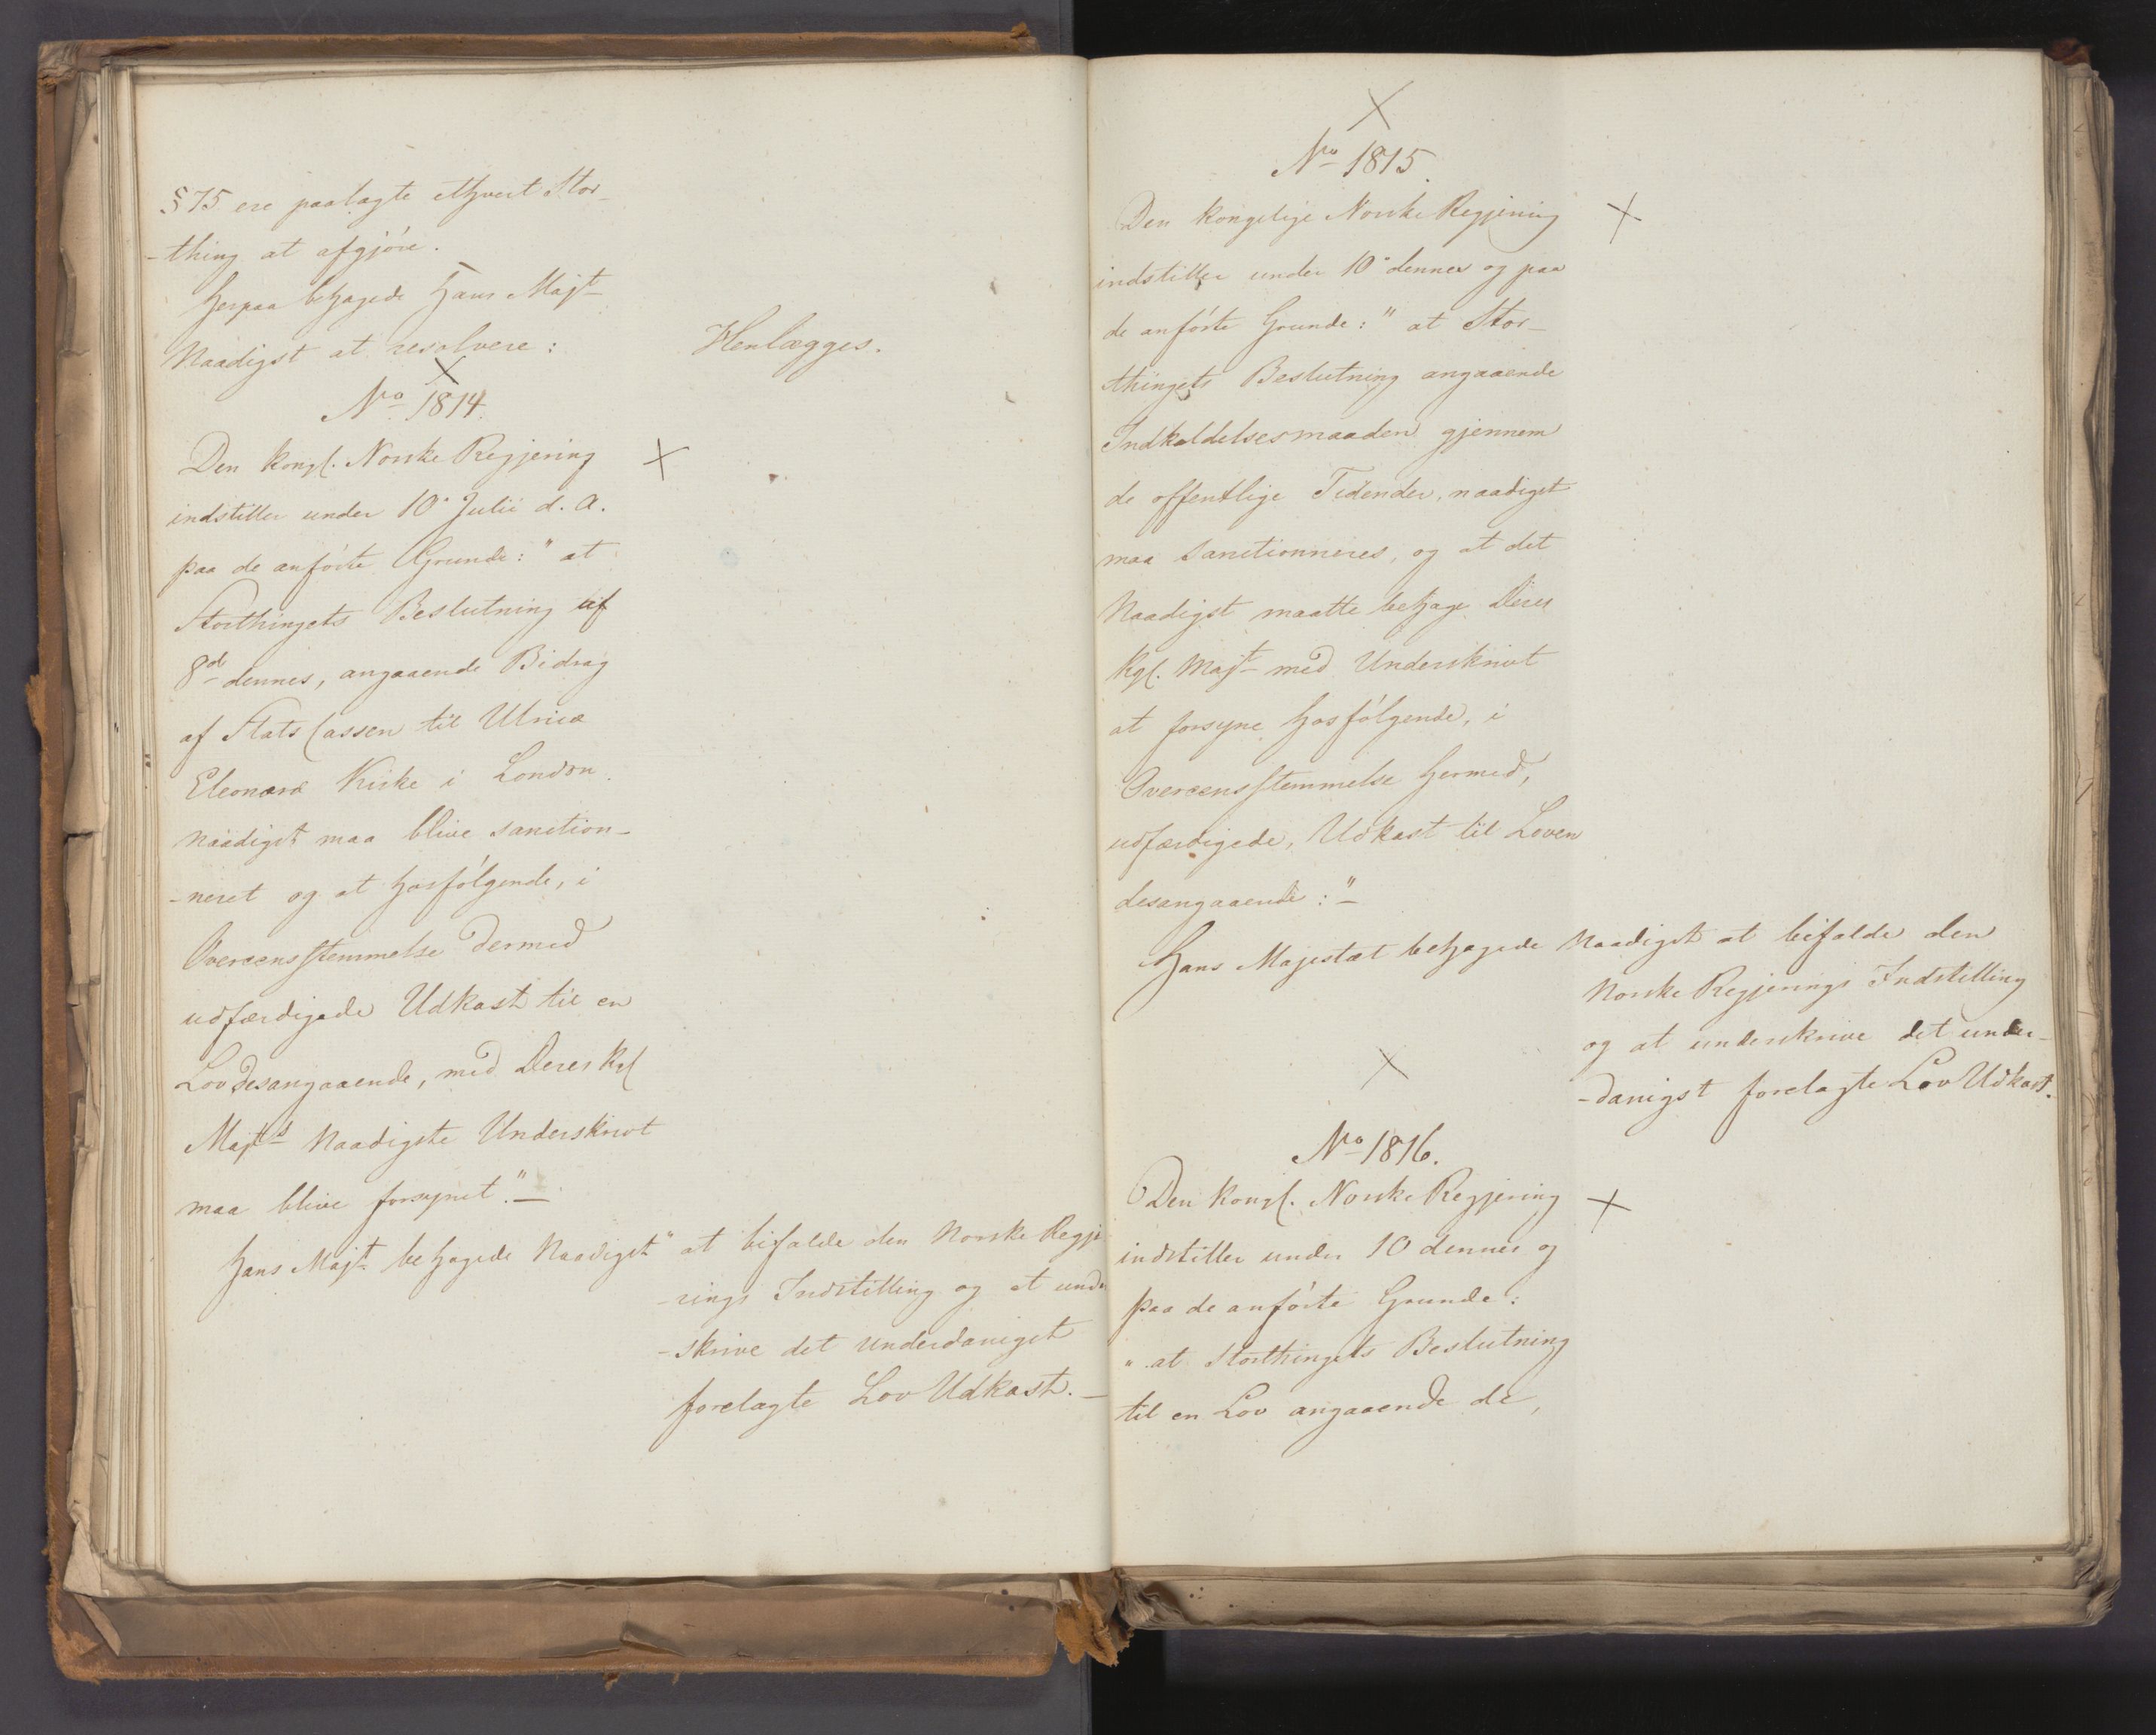 §75 ere paalagte ethvert Stor-
-thing at afgjöre.
Herpaa behagede Hans Majt
Naadigst at resolvere:
Henlægges.
X
No 1814.
Den kongl. Norske Regjering X
indstiller under 10de Julii d. A.
paa de anförte Grunde: " at
Storthingets Beslutning af
8d dennes, angaaende Bidrag
af Stats Cassen til Ulrica
Eleonora Kirke i London
naadigst maa blive sanction-
-neret og at hosfölgende, i
Overeensstemmelse dermed
udfærdigede Udkast til en
Lov desangaaende, med Deres Kgl
Majts Naadigste Underskrivt
maa blive forsynet." —
Hans Majt behagede Naadigst " at bifalde den Norske Regje
-rings Indstilling og at under
-skrive det underdanigst
forelagte Lov Udkast. —
X
No 1815.
Den kongelige Norske Regjering X
indstiller under 10de dennes og paa
de anförte Grunde: " at Stor-
thingets Beslutning angaaende
Indkaldelsesmaaden gjennem
de offentlige Tidender, naadigst
maa sanctionneres, og at det
Naadigst maatte behage Deres
Kgl. Majt med Underskrivt
at forsyne hosfölgende, i
Overeensstemmelse hermed,
udfærdigede, Udkast til Loven
desangaaende: " —
Hans Majestæt behagede Naadigst at bifalde den
Norske Regjerings Indstilling
og at underskrive det under-
-danigst forelagte Lov Udkast.
X
No 1816.
Den kongl. Norske Regjering X
indstiller under 10 dennes og
paa de anförte Grunde:
" at Storthingets Beslutning
til en Lov angaaende de,